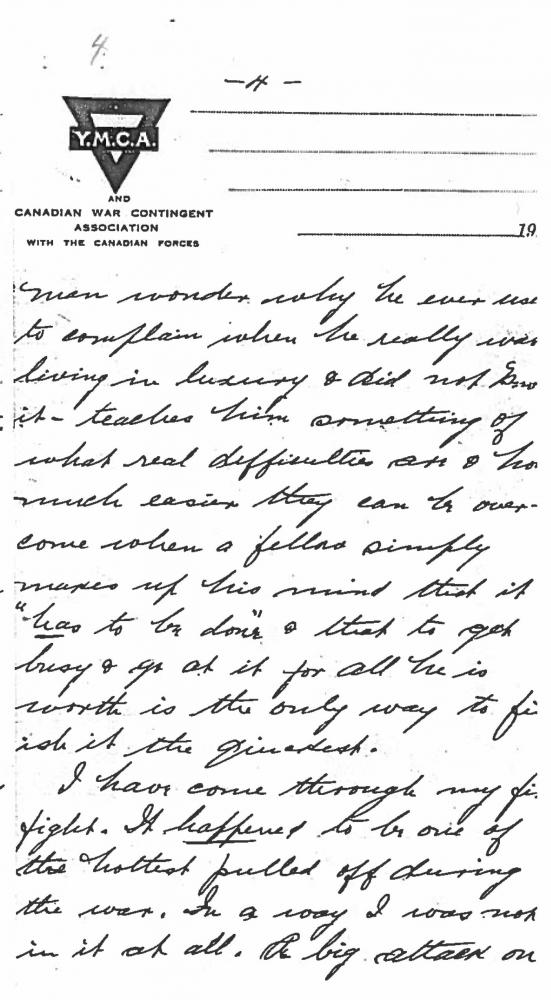 4.
- 4 -
Y.M.C.A.
AND
CANADIAN WAR CONTINGENT
ASSOCIATION
WITH THE CANADIAN FORCES
19
man wonder why he ever use
to complain when he really was
living in luxury & did not kno
it - teaches him something of
what real difficulties are & ho
much easier they can be over-
come when a fellow simply
makes up his mind that it
"has to be done" & that to get
busy & go at it for all he is
worth is the only way to fi
ish it the quickest.
I have come through my fi
fight. It happened to be one of
the hottest pulled off during
the war. In a way I was not
in it at all. A big attack on